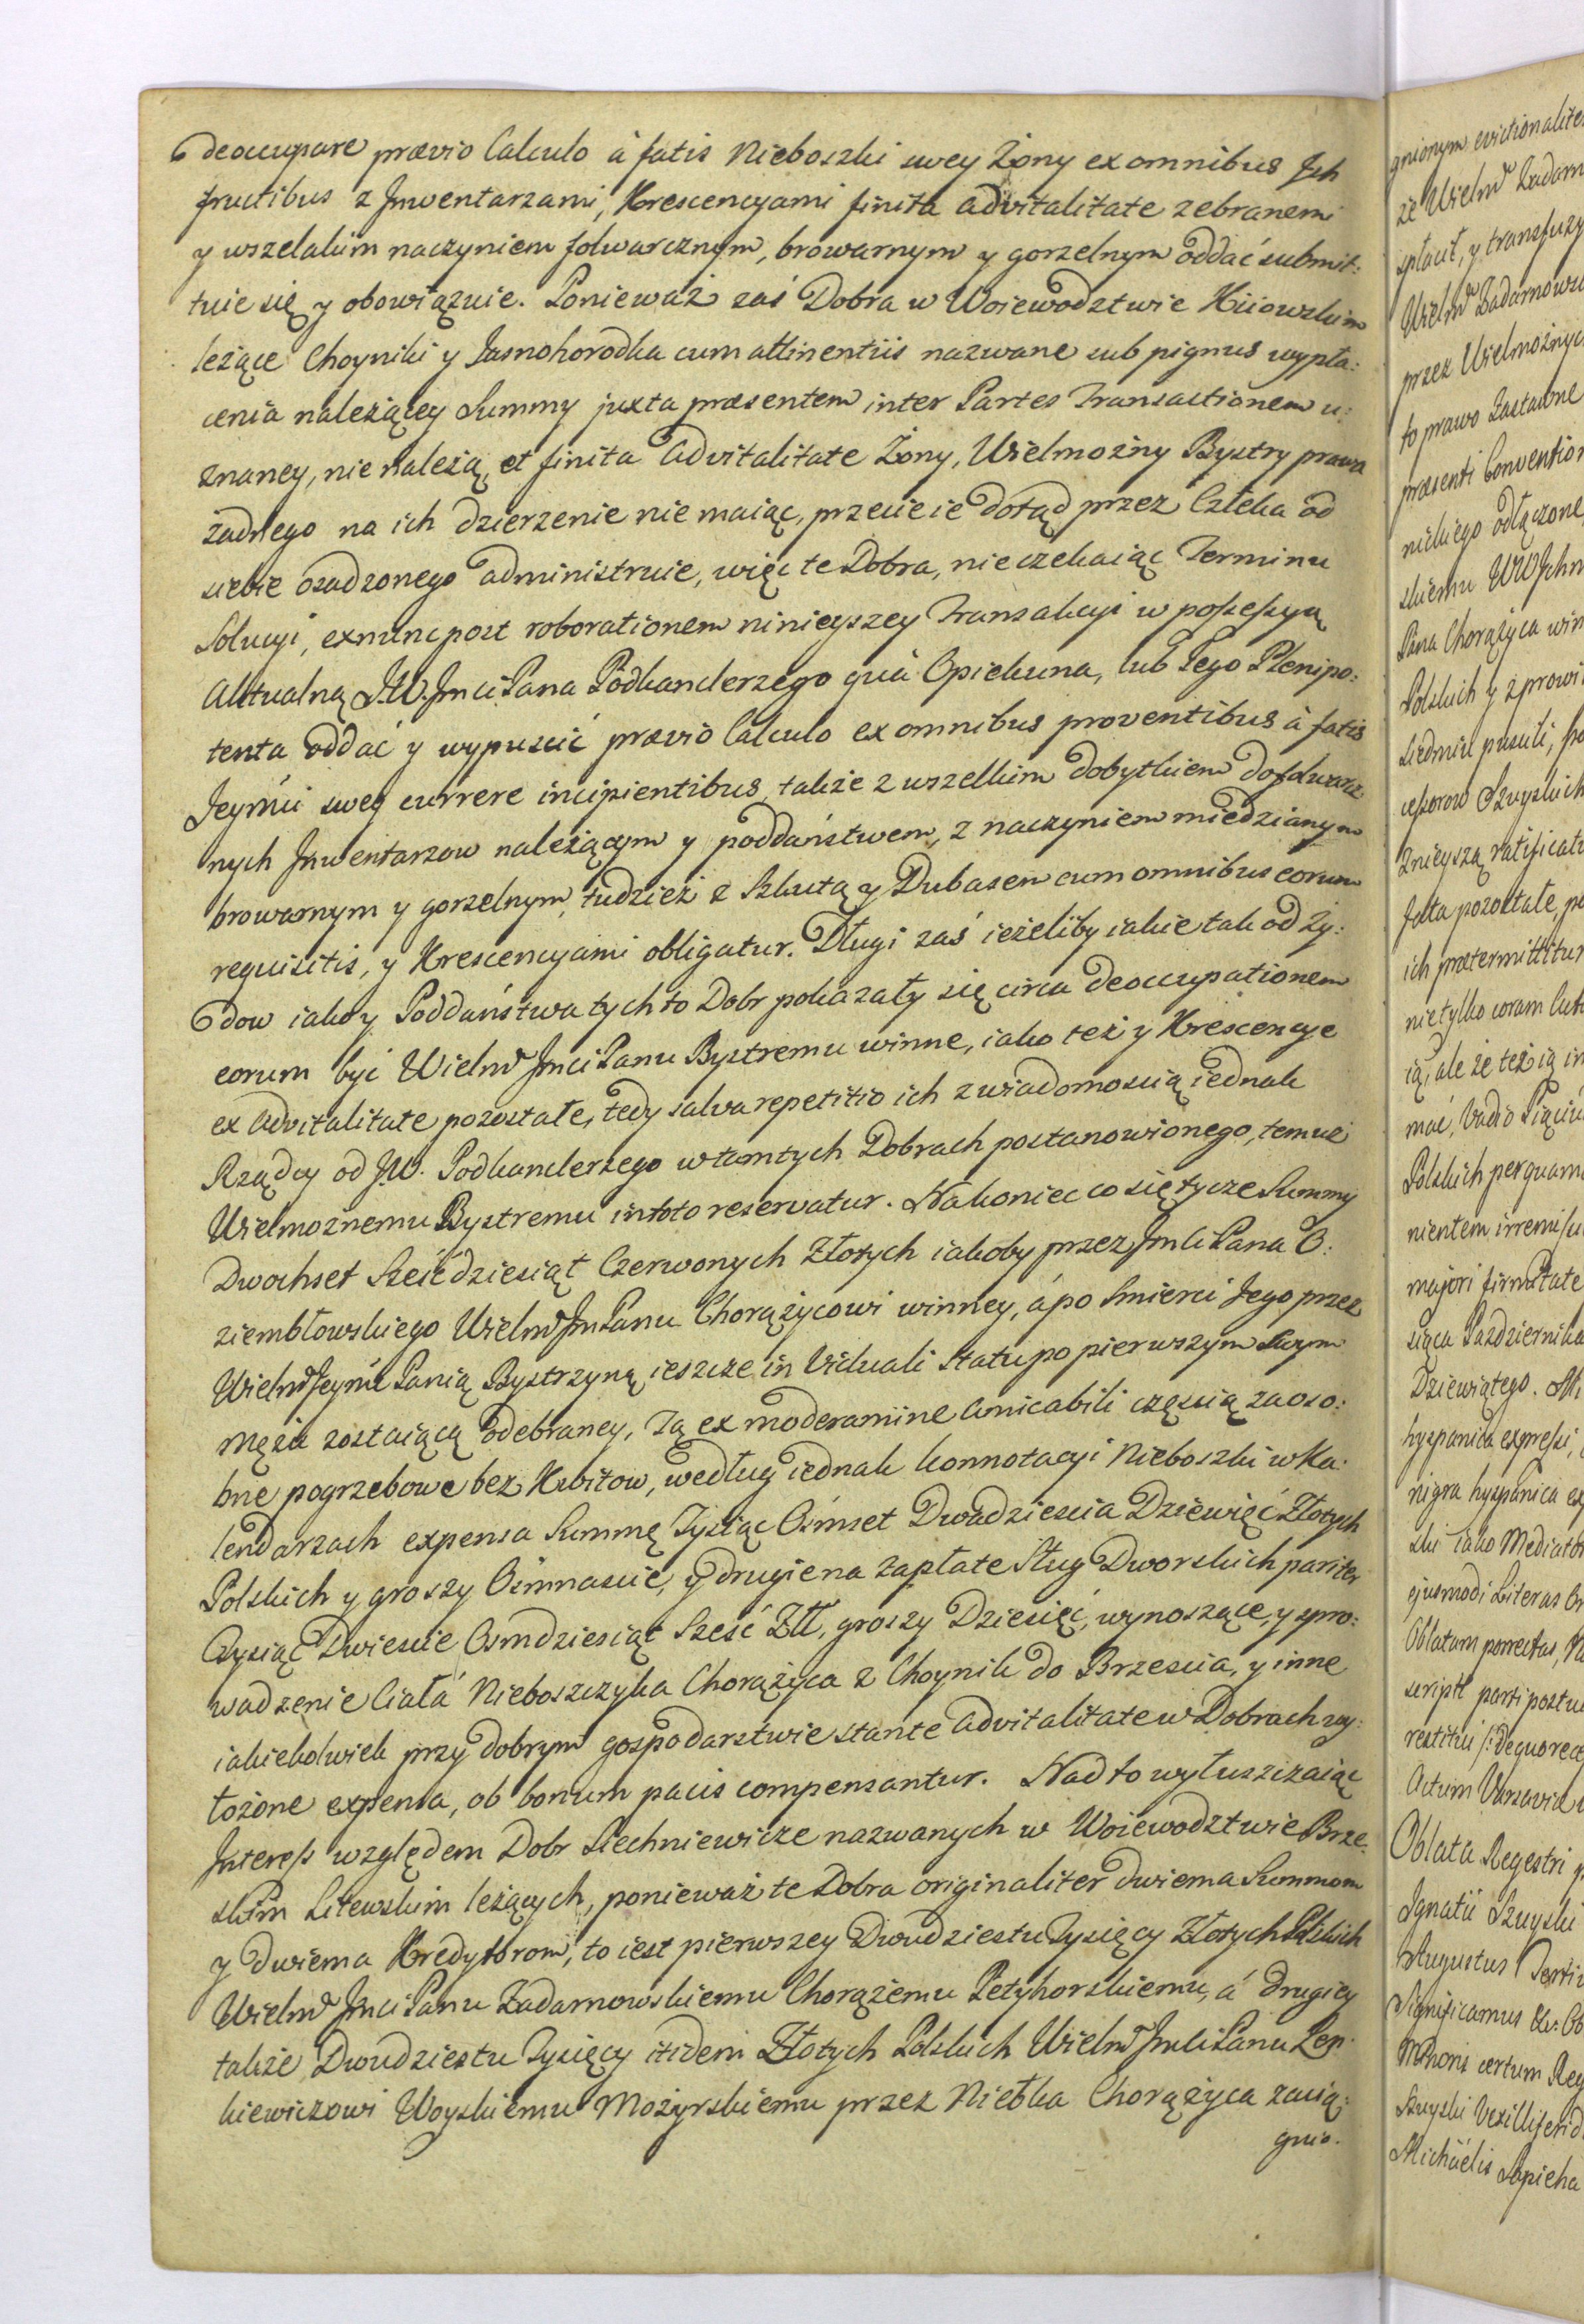 deoccupare prævio Calculo à fatis Nieboszki swey Żony ex omnibus Jch
fructibus z Jnwentarzami, Krescencyami finita advitalitate zebranemi
y wszelakim naczyniem folwarcznym, browarnym y gorzelnym oddać submit:
tuie się y obowiązuie. Ponieważ zaś Dobra w Woiewodztwie Kiiowskim
leżące Choyniki y Jasnohorodka cum attinentiis nazwane sub pignus wypła:
cenia należącey Summy juxta præsentem inter Partes Transactionem u:
znaney, nie należą, et finita Advitalitate Żony, Wielmożny Bystry prawa
żadnego na ich dzierzenie nie maiąc, przecie ie dotąd przez Człeka od
siebie osadzonego administruie, więc te Dobra, nie czekaiąc Terminu
Solucyi, exnunc post roborationem ninieyszey Transakcyi w possessyą
Aktualną J.W. Jmci Pana Podkanclerzego quà Opiekuna, lub Jego Plenipo:
tenta oddać y wypuscić prævio Calculo ex omnibus proventibus à fatis
Jeymci swey currere incipientibus, także z wszelkim dobytkiem do folwarcz
nych Jnwentarzow należącym y poddaństwem, z naczyniem miedzianym
browarnym y gorzelnym, tudzież z Szkutą y Dubasem cum omnibus eorum
requisitis, y Krescencyami obligatur. Długi zaś ieżeliby iakie tak od Ży:
dow iako y Poddaństwa tych to Dobr pokazały się circa deoccupationem
eorum być Wielmo Jmci Panu Bystremu winne, iako też y Krescencye
ex Advitalitate pozostałe, tedy salva repetitio ich z wiadomoscią iednak
Rządcy od J.W. Podkanclerzego w tamtych Dobrach postanowionego, temuż
Wielmożnemu Bystremu in toto reservatur. Nakoniec co się tycze Summy
Dwochset Sześćdziesiąt Czerwonych Złotych iakoby przez Jmci Pana O:
ziembłowskiego Wielmo Jm Panu Chorążycowi winney, á po Smierci Jego przez
Wielmo Jeymć Panią Bystrzyną ieszcze in Viduali Statu po pierwszym Swym
Mężu zostaiącą odebraney, Tą ex moderamine Amicabili częscią za oso:
bne pogrzebowe bez Kwitow, według iednak konnotacyi Nieboszki w Ka:
lendarzach expensa Summę Tysiąc Osmset Dwadziescia Dziewięć Złotych
Polskich y groszy Osmnascie, y drugie na zapłate Sług Dworskich pariter
Tysiąc Dwiescie Osmdziesiąt Sześć Złł, groszy Dziesięć, wynoszące, y zpro:
wadzenie Ciała Nieboszczyka Chorążyca z Choynik do Brzescia, y inne
iakiekolwiek przy dobrym gospodarstwie stante advitalitate w Dobrach wy:
łożone expensa, ob bonum pacis compensantur. Nad to wyłuszczaiąc
Jnteress względem Dobr Siechniewicze nazwanych w Woiewodztwie Brze:
skim Litewskim leżących, ponieważ te Dobra originaliter dwiema Summom
y dwiema Kredytorom, to iest pierwszey Dwudziestu Tysięcy Złotych Polskich
Wielmo Jmci Panu Zadarnowskiemu Chorążemu Petyhorskiemu, á drugiey
także Dwudziestu Tysięcy itidem Złotych Polskich Wielmo Jmci Panu Len:
kiewiczowi Woyskiemu Mozyrskiemu przez Niebka Chorążyca zacią:
gnio.
gnionym evictionalite
że Wielmo Zadarn
spłacił, y transfuzy
Wielmo Zadarnowsk
przez Wielmożnyc
to prawo Zastawne
præsenti Convention
nickiego odłączone
skiemu WWJchm
Pana Chorążyca win
Polskich y z prowi
siedmiu pusuli, po
cessorow Szuyskich
znieyszą ratificati
fata pozostałe, pe
ich prætermittitur
nietylko coram
ią, ale że też ią in
mać, Vadio Pięciu
Polskich perquam
nientem irremissi
majori firmitate
siąca Pazdziernika
Dziewiątego. Mi
hyspanica expressi,
nigra hyspanica ex
ski iako Mediator
ejusmodi Literas Or
Oblatam porrectas,
script parti postu
restitui /: de quo rece
Actum Varsaviæ
Oblata Regestri
Ignatii Szuyski
Augustus Terti
Significamus &c. Ob
Minoris certum Reg
Szuyski Vexilliferid
Michäelis Sapieha